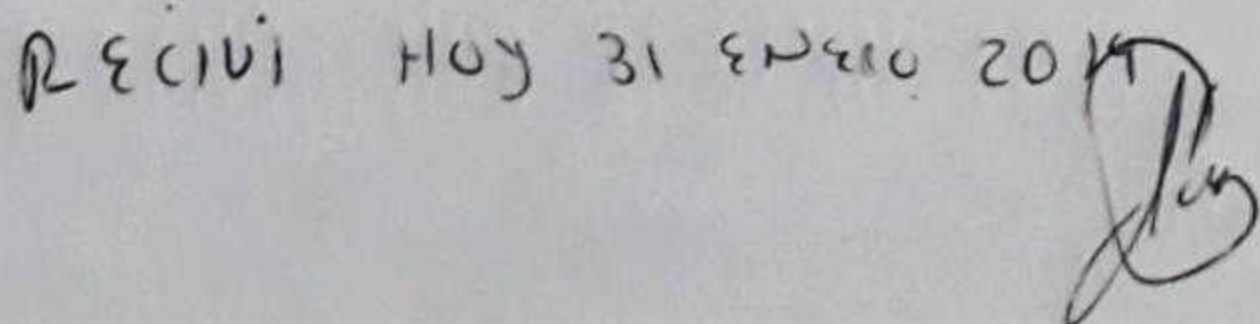 RECIVI HOY 31 ENERO 2019